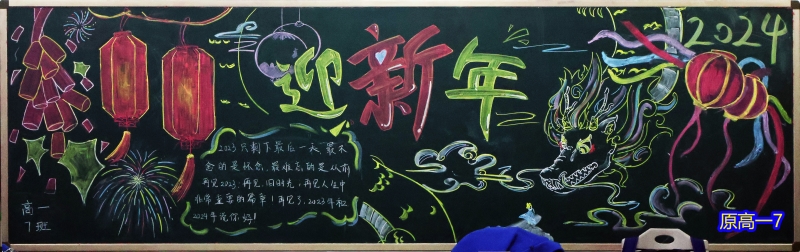 迎新年
2024
2023只剩下最后一天,最不
舍的是怀念,最难忘的是从前
再见2023,再见,旧时光,再见人生中
非常重要的篇章!再见了,2023年和
2024年说你好!
高一
7班
原高一7